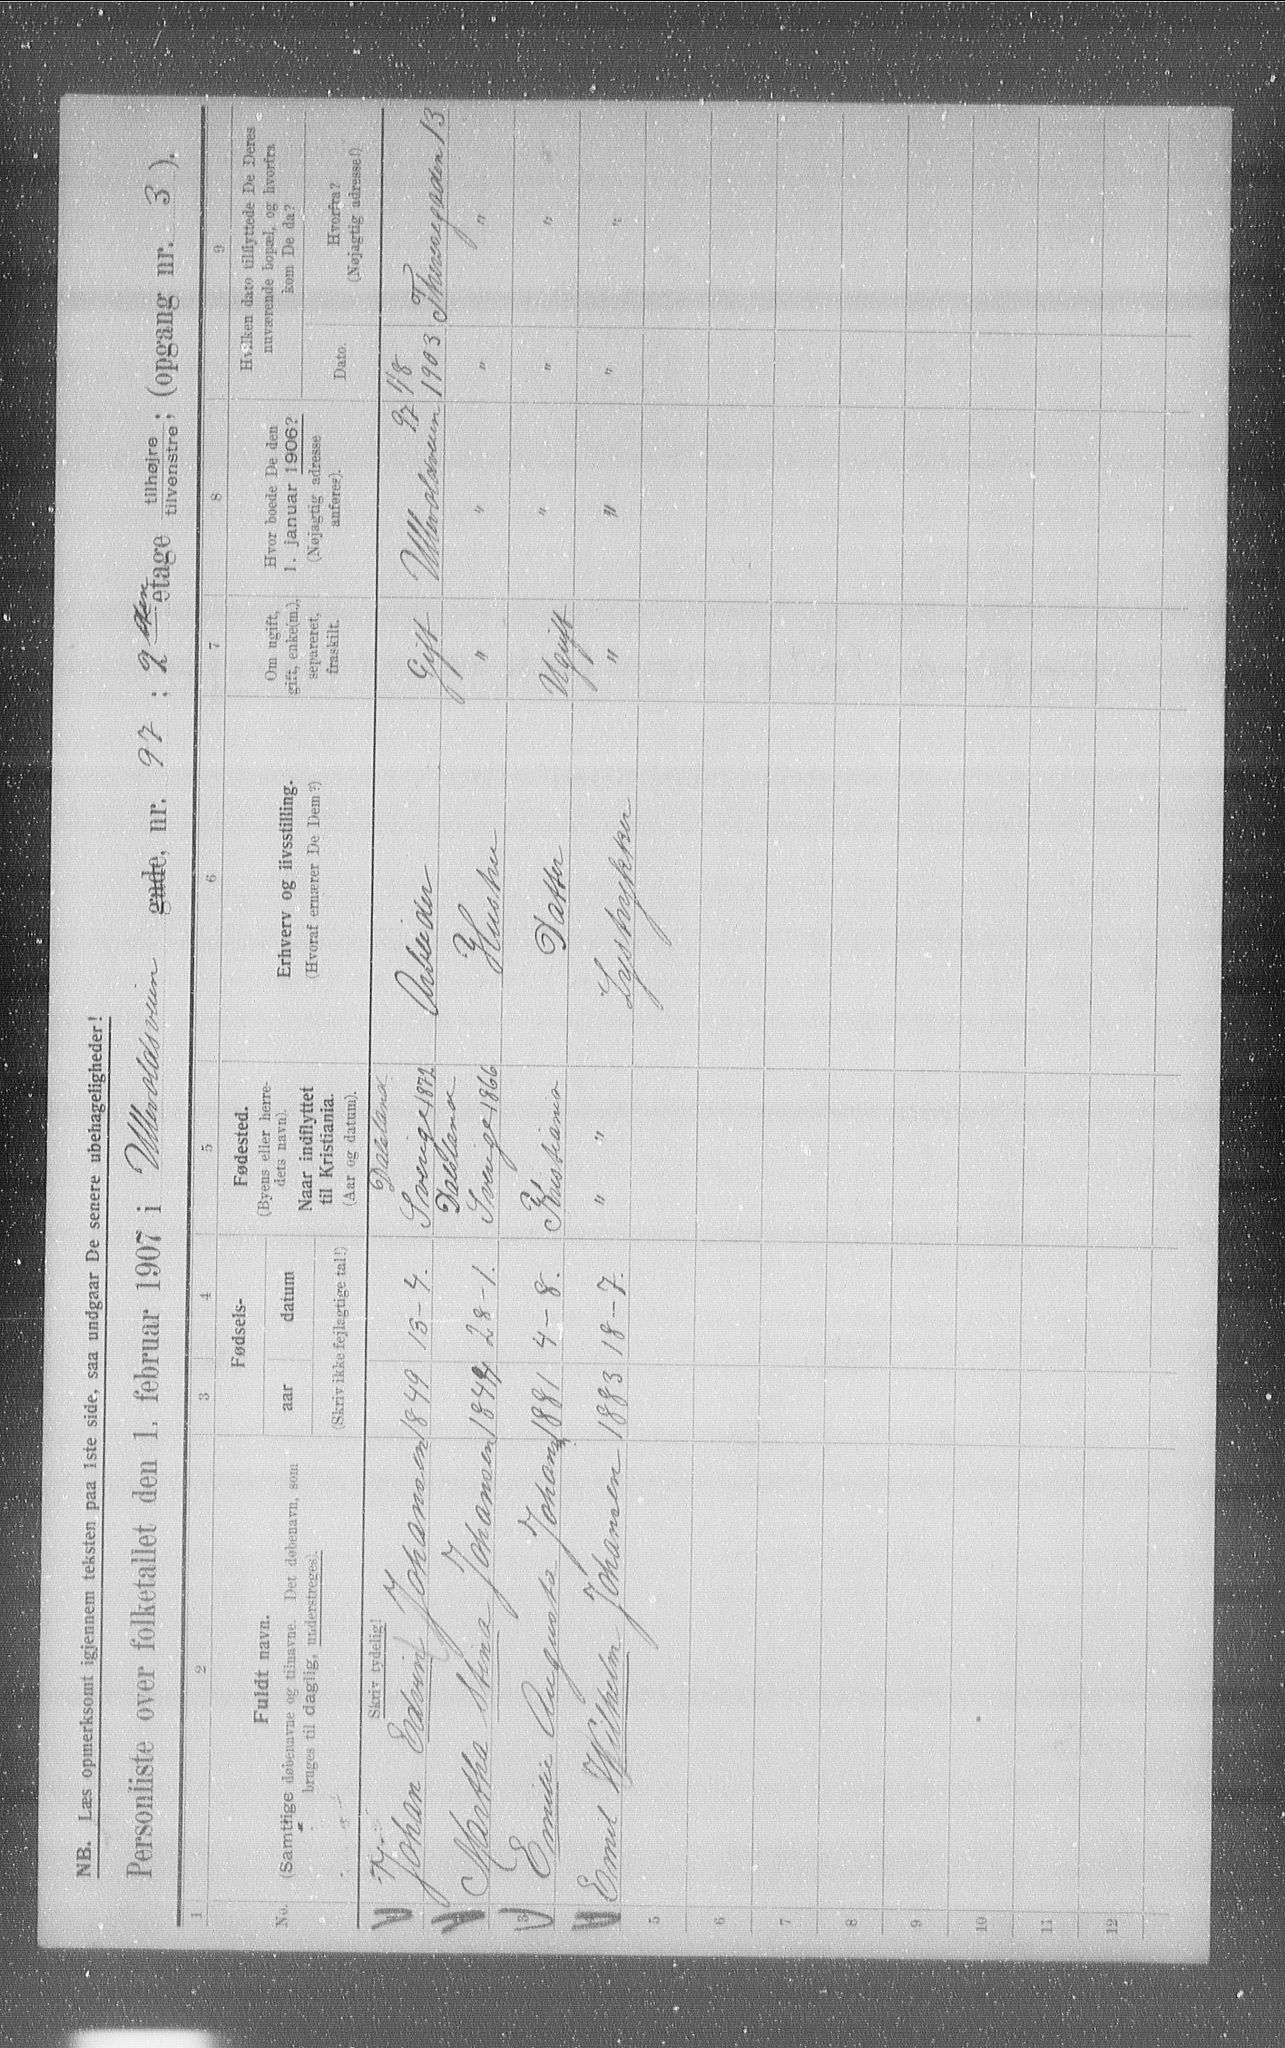 NB. Læs opmerksomt igjennem teksten paa 1ste side, saa undgaar De senere ubehageligheder!
Personliste over folketallet den 1. februar 1907 i Ullevoldsveien gade, nr. 97 ; 2den etage tilhøjre tilvenstre; (opgang nr. 3 ).
1 2 3 4 5 6 7 8 9
No.
Fuldt navn.
(Samtlige døbenavne og tilnavne. Det døbenavn, som
bruges til daglig, understreges).
Fødsels-
aar datum
(Skriv ikke fejlagtige tal!)
Fødested.
(Byens eller herre-
dets navn).
Naar indflyttet
til Kristiania.
(Aar og datum).
Erhverv og livsstilling.
(Hvoraf ernærer De Dem?)
Om ugift,
gift, enke(m.),
separeret,
fraskilt.
Hvor boede De den
1. januar 1906?
(Nøjagtig adresse
anføres).
Hvilken dato tilflyttede De Deres
nuværende bopæl, og hvorfra
kom De da?
Dato.
Hvorfra?
(Nøjagtig adresse!)
Skriv tydelig!
Dalsland 97 1/8
Johan Edvin Johansen 1849 15-4. Sverige 1872 Arbeider Gift Ullevoldsveien 1903 13
Dalsland
Martha Stina Johansen 28-1. Sverige 1866 Hustru " " " "
3 Emilie Augusta Johans 1881 4-8. Kristiania Datter Ugift " " "
Emil Wilhelm Johansen 1883 18-7. " " " " " "
5
6
7
8
9
10
11
12